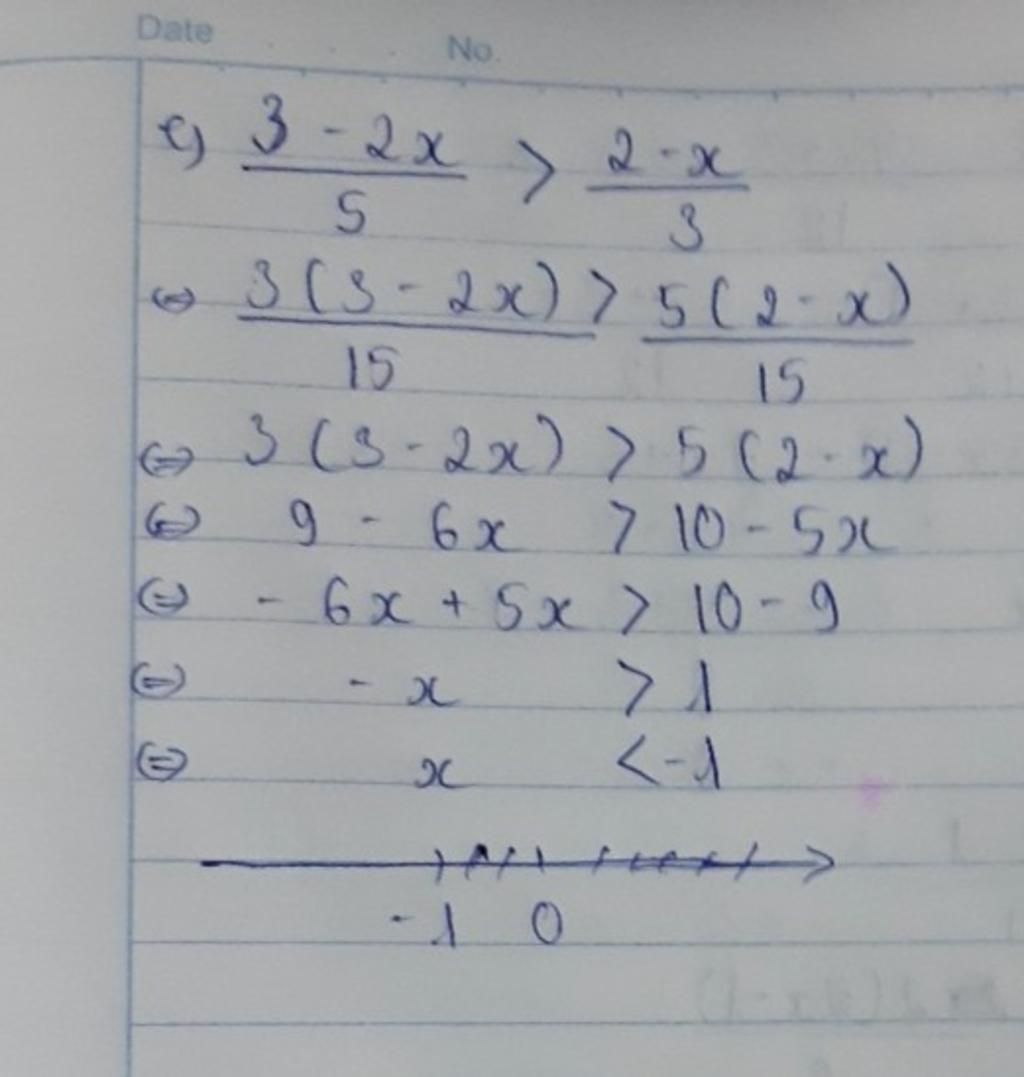 Date No.
c) \frac{3 - 2x}{5} > \frac{2 - x}{3}
⇔ \frac{3(3 - 2x)}{15} > \frac{5(2 - x)}{15}
⇔ 3(3 - 2x) > 5(2 - x)
⇔ 9 - 6x > 10 - 5x
⇔ - 6x + 5x > 10 - 9
⇔ - x > 1
⇔ x < -1
-1 0